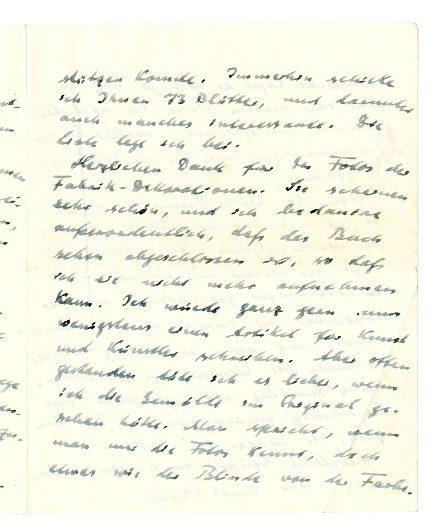 stützen konnte. Immerhin schicke
ich Ihnen 73 Blätter, und darunter
auch manches interessante. Die
Liste legt ich bei.
Herzlichen Dank für die Fotos der
Fabrik-Dekorationen. Sie scheinen
sehr schön, und ich bedaure
außerordentlich, daß das Buch
schon abgeschlossen ist, so daß
ich sie nicht mehr aufnehmen
kann. Ich würde ganz gern nun
wenigstens einen Artikel für Kunst
und Künstler schreiben. Aber offen
gestanden täte ich es lieber, wenn
ich die Gemälde im Original ge-
sehen hätte. Man spricht, wenn
man nur die Fotos kennt, doch
etwas wie der Blinde von der Farbe.